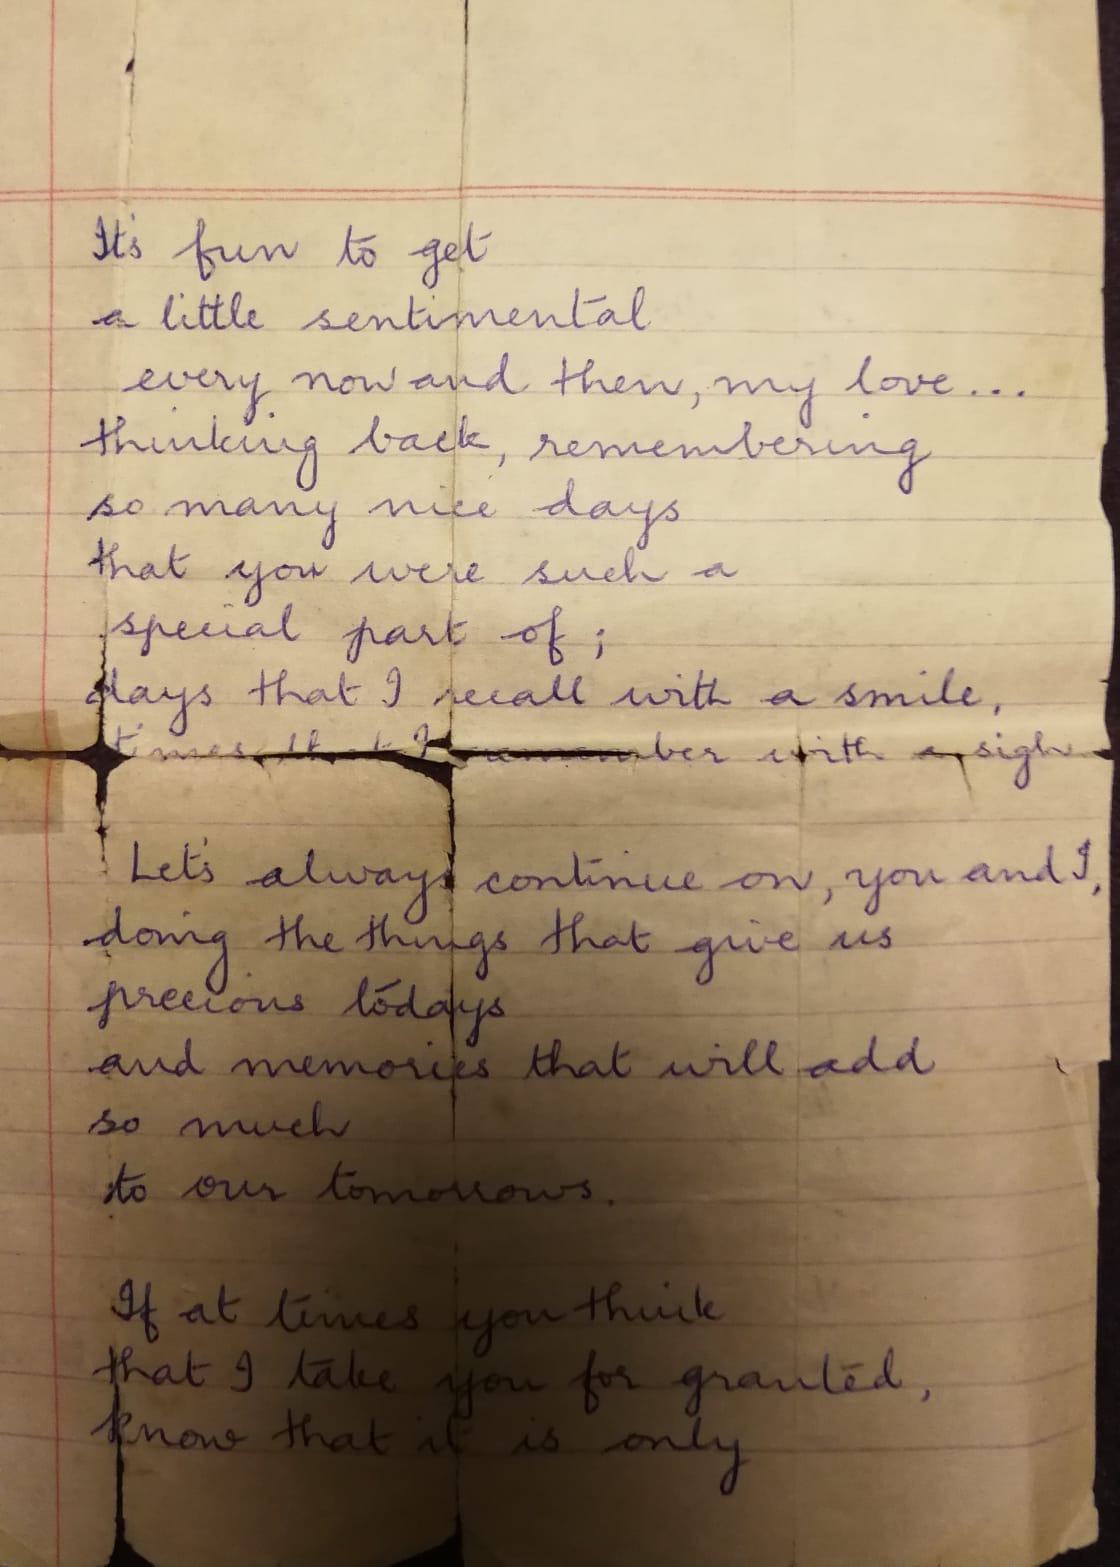 It's fun to get
a little sentimental
every now and then, my love...
thinking back, remembering
so many nice days
that you were such a
special part of;
days that I recall with a smile,
times that I remember with a sigh
Let's always continue on, you and I,
doing the things that give us
precious todays
and memories that will add
so much
to our tomorrows.
If at times you think
that I take you for granted,
know that it is only